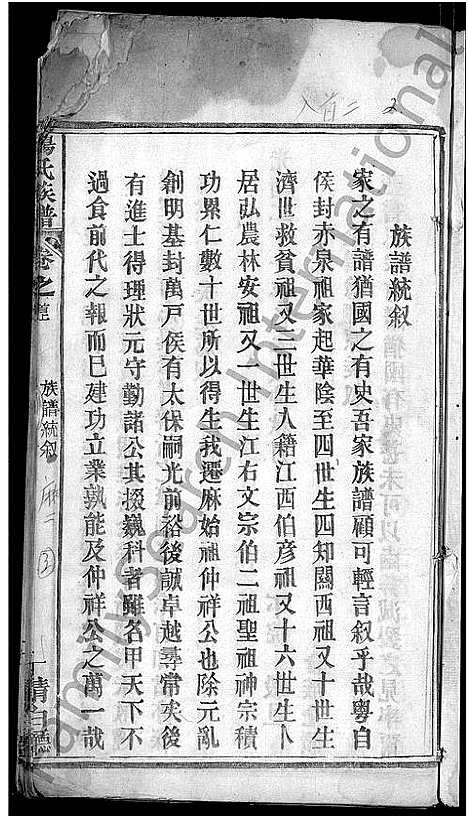 入首二 2
族譜統叙
家之有譜猶國之有史吾家族譜顧可輕言叙乎哉粵自
侯封赤泉祖家起華陰至四世生四知關西祖又十世生
濟世救貧祖又三世生入籍江西伯彥祖又十六世生卜
居弘農林安祖又一世生江右文宗伯二祖聖祖神宗積
功累仁數十世所以得生我遷麻始祖仲祥公也除元亂
創明基封萬戶侯有太保嗣光前裕後誠卓越尋常矣後
有進士得理狀元守勤諸公其掇巍科者雖名甲天下不
過食前代之報而巳建功立業孰能及仲祥公之萬一哉
楊氏族譜 卷之
族譜統叙
麻二
2
一 清白德
FamilySearch International